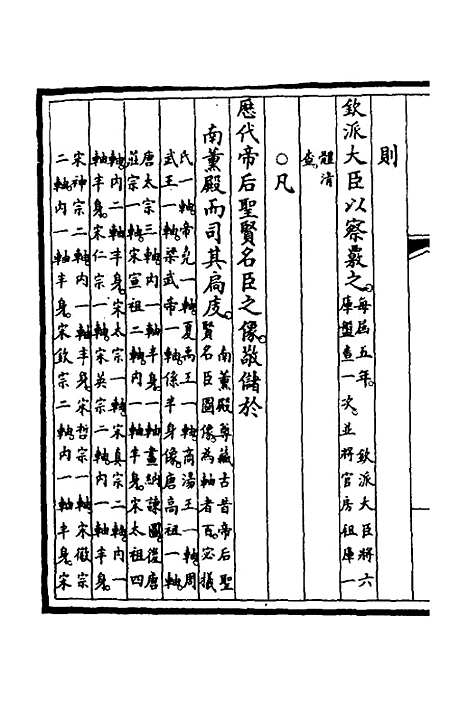 則
欽派大臣以察覈之。每屆五年。 欽派大臣將六
庫盤查一次。並將官房租庫一
體清
查。
○凡
歷代帝后聖賢名臣之像。敬儲於
南薰殿而司其扃庋。南薰殿尊藏古昔帝后聖
賢名臣圖像。為軸者百。宓犧
氏一軸。帝堯一軸。夏禹王一軸。商湯王一軸。周
武王一軸。梁武帝一軸。係半身像。唐高祖一軸。
唐太宗三軸。內一軸半身。一軸畫納諫圖。後唐
莊宗一軸。宋宣祖二軸。內一軸半身。宋太祖四
軸。內二軸半身。宋太宗一軸。宋真宗二軸。內一
軸半身。宋仁宗一軸。宋英宗二軸。內一軸半身。
宋神宗二軸。內一軸半身。宋哲宗一軸。宋徽宗
二軸。內一軸半身。宋欽宗二軸。內一軸半身。宋